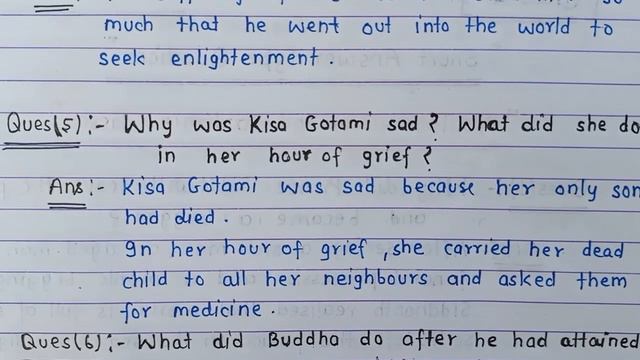 much that he went out into the world to
seek enlightenment.
Ques(5):- Why was Kisa Gotami sad? What did she do
in her hour of grief?
Ans:- Kisa Gotami was sad because her only son
had died.
In her hour of grief, she carried her dead
child to all her neighbours and asked them
for medicine.
Ques(6):- What did Buddha do after he had attained